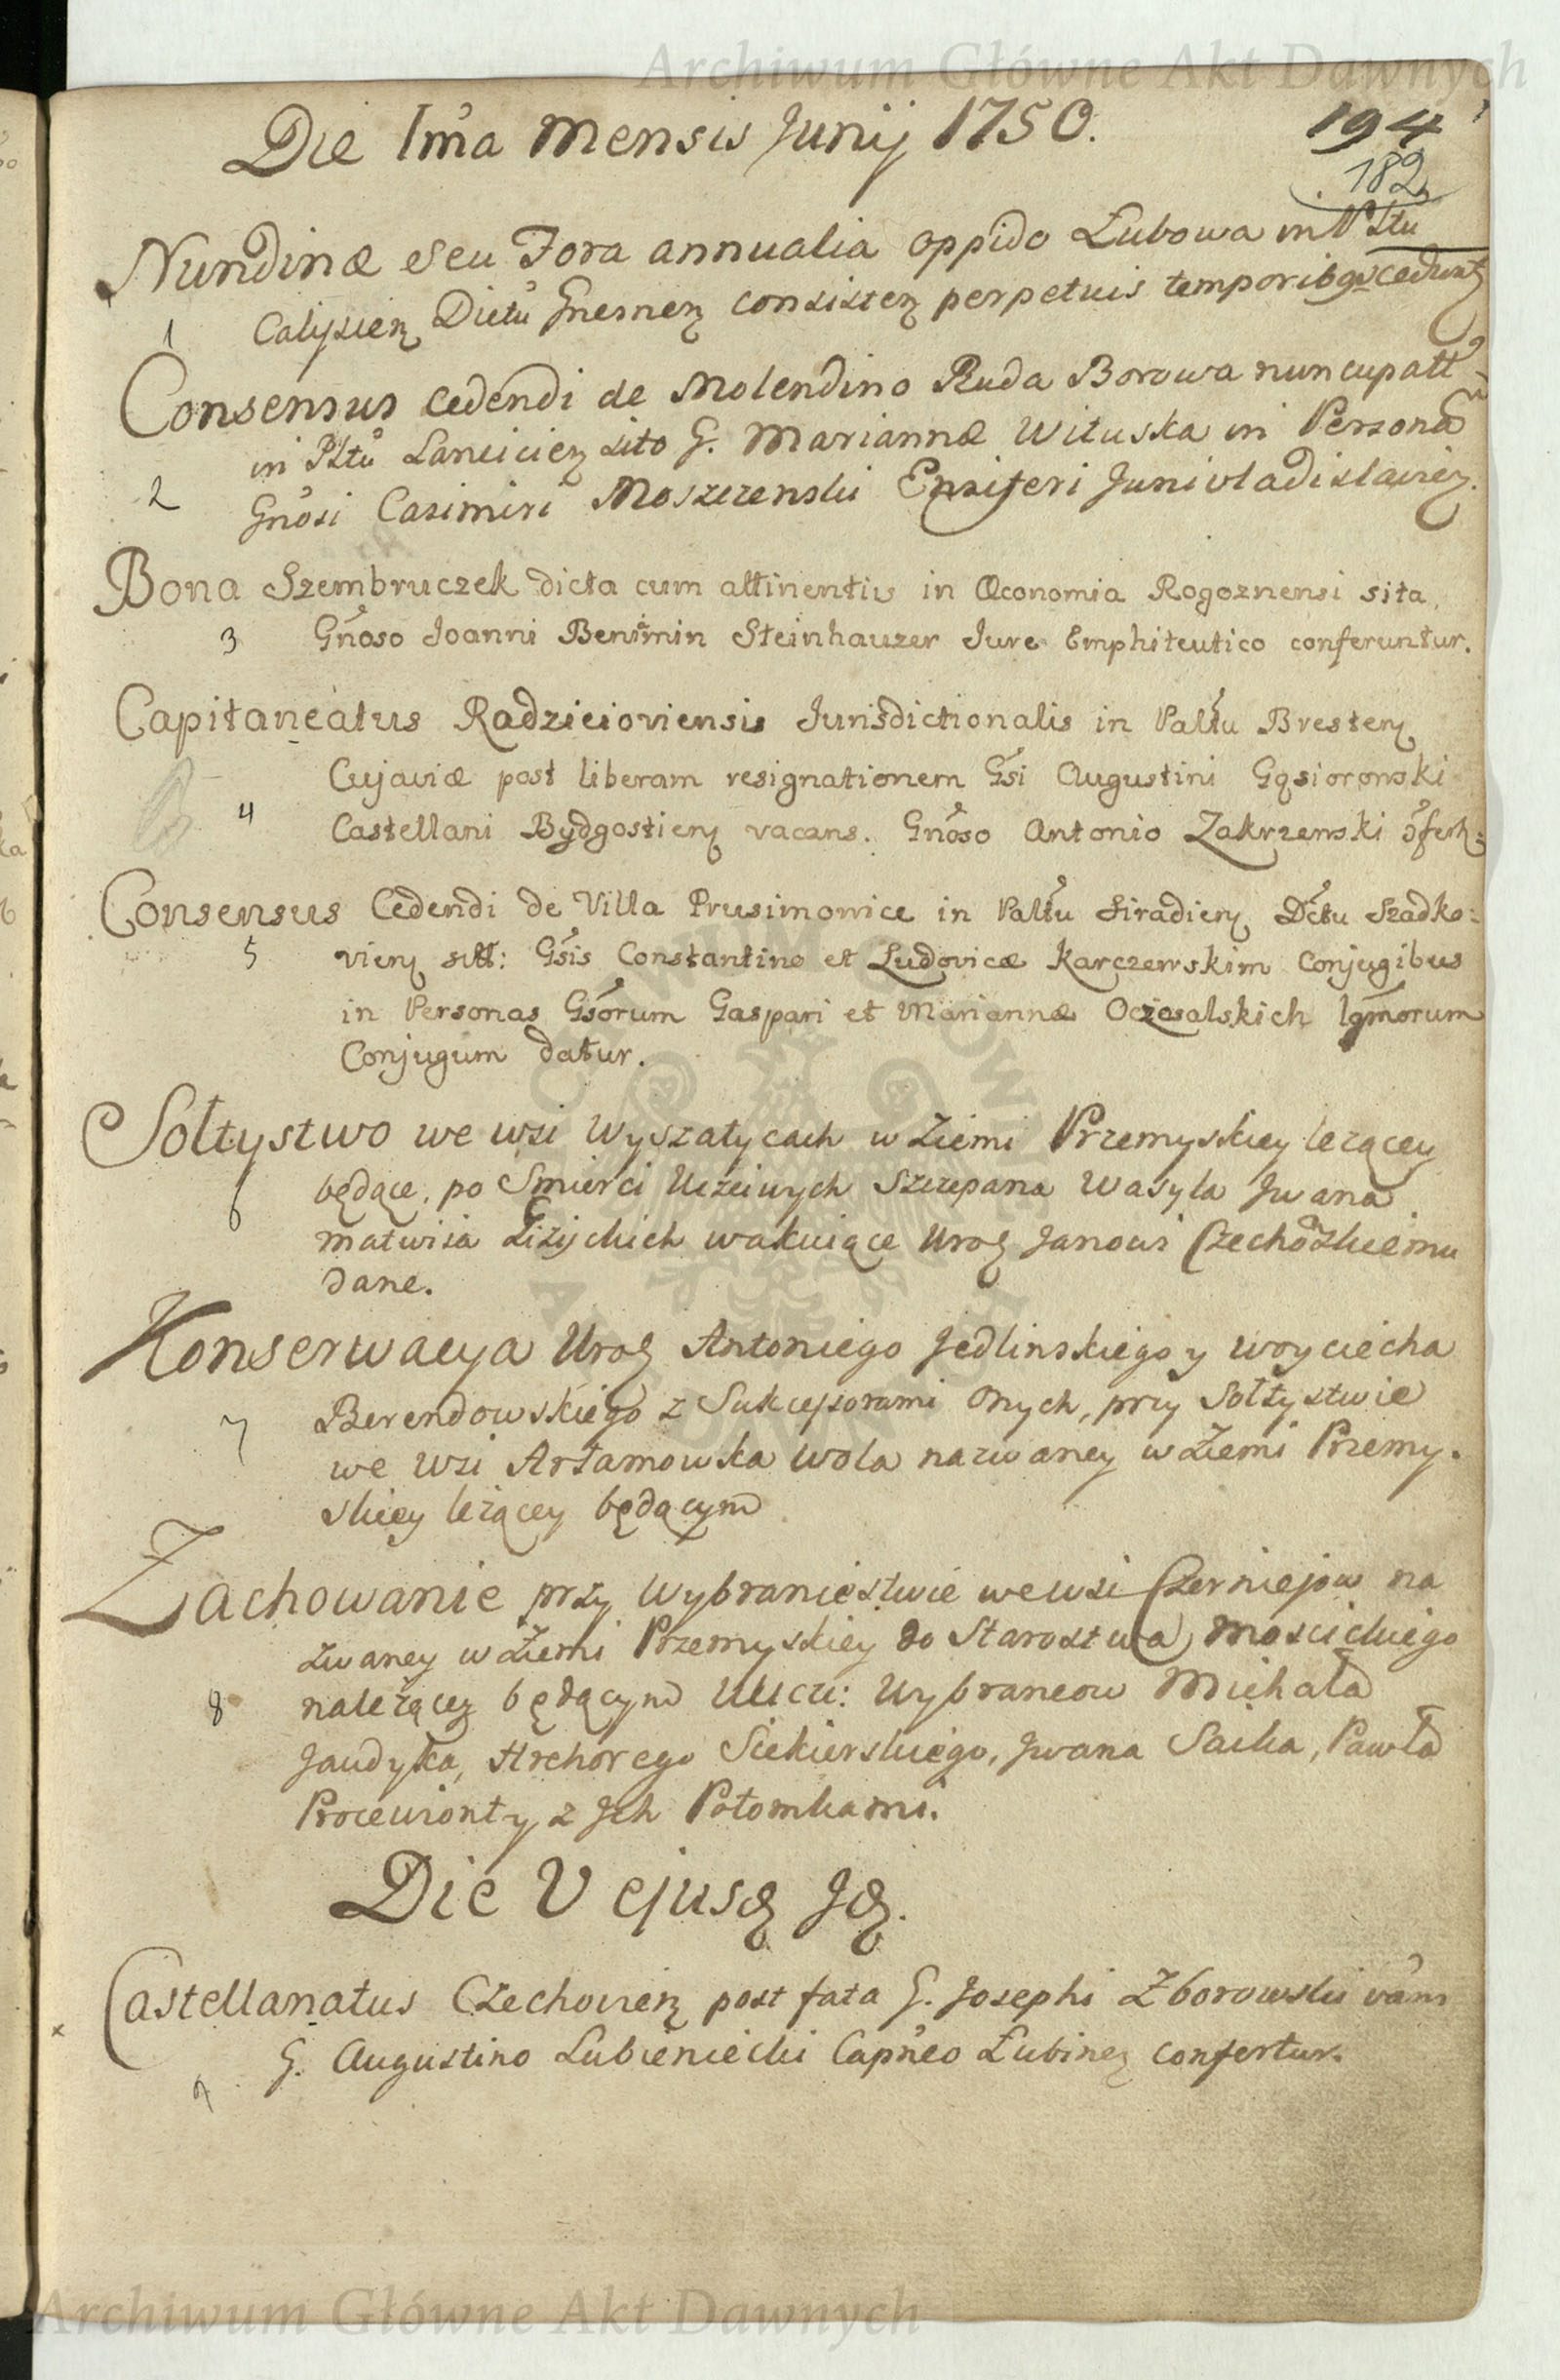 Archiwum Główne Akt Dawnych
Die Ima Mensis Junij 1750.
194
182
Nundinæ seu Fora annualia oppido Łubowa in Pltu
1 Calysien Dictu Gnesnen consisten perpetuis temporibq ceduntr
Consensus cedendi de Molendino Ruda Borowa nuncupatt
in Pltu Lancicien sito G. Mariannæ Wituska in Personã
2 Gnosi Casimiri Moszczenski Ensiferi Junivladislavien.
Bona Szembruczek dicta cum attinentiis in Œconomia Rogoznensi sita
3 Gnoso Joanni Beniamin Steinhauzer Jure Emphiteutico conferuntur.
Capitaneatus Radzieioviensis Jurisdictionalis in Paltu Bresten
Cujaviæ post liberam resignationem Gsi Augustini Gąsiorowski
4 Castellani Bydgostien vacans. Gnoso Antonio Zakrzewski ɔfertr:
Consensus Cedendi de Villa Prusimowice in Paltu Siradien Dctu Szadko=
5 vien sitt: Gsis Constantino et Ludovicæ Karczewskim Conjugibus
in Personas Gsorum Gaspari et Mariannæ Oczosalskich lgmorum
Conjugum datur.
Sołtystwo we wsi Wyszatycach w Ziemi Przemyskiey leżącey
6 będące, po Smierci Uczciwych Szczepana Wasyla Jwana
Matwisa Liżyckich wakuiące Urog Janowi Czechowskiemu
dane.
Konserwacya Urog Antoniego Jedlinskiego y Woyciecha
7 Berendowskiego z Sukcessorami Onych, przy Sołtystwie
we Wsi Artamowska Wola nazwaney w Ziemi Przemy.
skiey leżącey będącym
Zachowanie przy Wybraniestwie we wsi Czerniejow na
zwaney w Ziemi Przemyskiey do Starostwa Moscickiego
8 należącey będącym Uucz: Wybrancow Michała
Jaudyka, Hrehorego Siekierskiego, Jwana Saika, Pawła
Procewionty z Jch Potomkami.
Die V ejusq Jq.
Castellanatus Czechovien post fata G. Josephi Zborowski vans
x
9 G. Augustino Lubieniecki Capneo Łubinen confertur.
Archiwum Główne Akt Dawnych